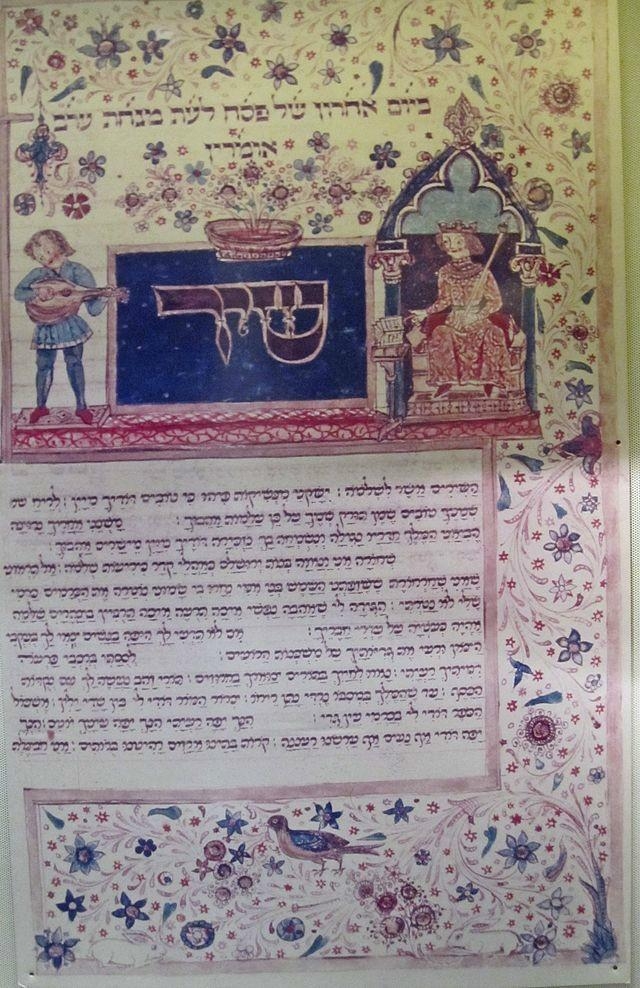 ביום אחרון של פסח לעת מנחת ערב
אומרין
שיר
השירים אשר לשלמה: ישקני מנשיקות פיהו כי טובים דודיך מיין: לריח
שמניך טובים שמן תורק שמך על כן עלמות אהבוך: משכני אחריך נרוצה
הביאני המלך חדריו נגילה ונשמחה בך נזכירה דודיך מיין מישרים אהבוך:
שחורה אני ונאוה בנות ירושלם כאהלי קדר כיריעות שלמה: אל תראוני
שאני שחרחורת ששזפתני השמש בני אמי נחרו בי שמוני נוטרה את הכרמים כרמי
שלי לא נטרתי: הגידה לי שאהבה נפשי איכה תרעה איכה תרביץ בצהרים שלמה
אהיה כעטיה על עדרי חבריך: אם לא תדעי לך היפה בנשים צאי לך בעקבי
הצאן ורעי את גדיותיך על משכנות הרועים: לססתי ברכבי פרעה
דמיתיך רעיתי: נאוו לחייך בתורים צוארך בחרוזים: תורי זהב נעשה לך עם נקודות
הכסף: עד שהמלך במסבו נרדי נתן ריחו: צרור המור דודי לי בין שדי ילין: אשכול
הכפר דודי לי בכרמי עין גדי: הנך יפה רעיתי הנך יפה עיניך יונים: הנך
יפה דודי אף נעים אף ערשנו רעננה: קרות בתינו ארזים רהיטנו ברותים: אני חבצלת